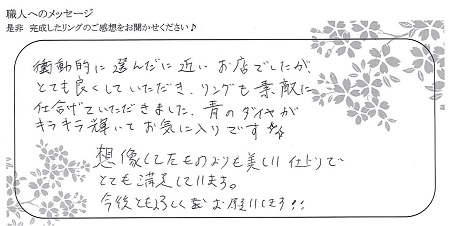 職人へのメッセージ
是非 完成したリングのご感想をお聞かせください♪
衝動的に選んだに近いお店でしたが、
とても良くしていただき、リングも素敵に
仕上げていただきました。青のダイヤが
キラキラ輝いてお気に入りです
想像してたものよりも美しい仕上りで
とても満足しています。
今後ともよろしくお願いします!!